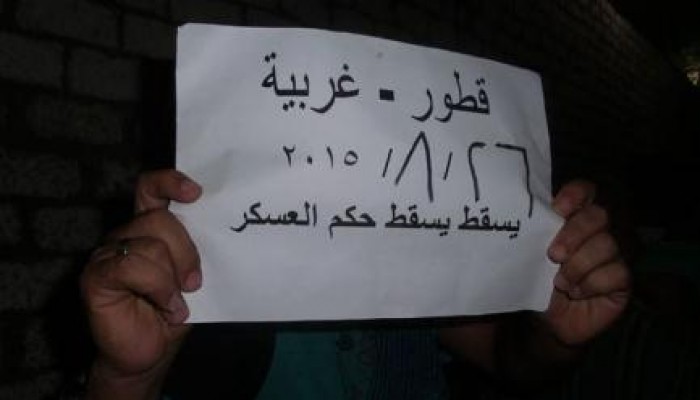 قطور - غربية
٢٦ / ٨ / ٢٠١٥
يسقط يسقط حكم العسكر